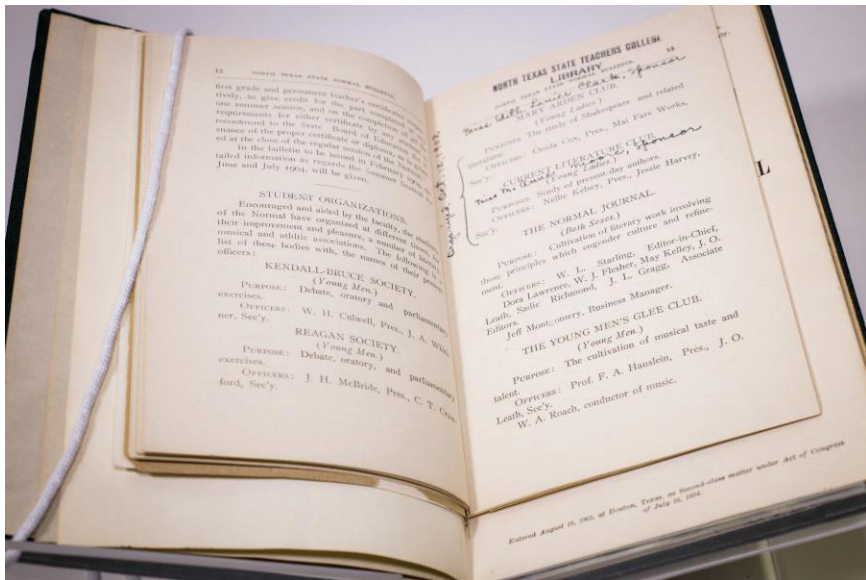 12 NORTH TEXAS STATE NORMAL BULLETIN.
first grade and permanent teacher's certificates
tively, to give credit for the part completed
one summer session, and on the completion of all
requirements for either certificate by any
recommend to the State Board of Education
suance of the proper certificate or diploma, as
ed at the close of the regular session of the Normal.
In the bulletin to be issued in February 1904,
tailed information as regards the Summer Session for
June and July 1904, will be given.
STUDENT ORGANIZATIONS.
Encouraged and aided by the faculty, the students
of the Normal have organized at different times, for
their improvement and pleasure, a number of literary,
musical and athletic associations. The following is a
list of these bodies, with the names of their present
officers:
KENDALL-BRUCE SOCIETY.
(Young Men.)
PURPOSE: Debate, oratory and parliamentary
exercises.
OFFICERS: W. H. Culwell, Pres., J. A.
ner, Sec'y.
REAGAN SOCIETY.
(Young Men.)
PURPOSE: Debate, oratory, and parliamentary
exercises.
OFFICERS: J. H. McBride, Pres., C. T.
ford, Sec'y.
NORTH TEXAS STATE TEACHERS COLLEGE
LIBRARY
NORTH TEXAS STATE NORMAL BULLETIN. 13
Miss Edith Lanier Clark, Sponsor
MARY ARDEN CLUB.
(Young Ladies)
PURPOSE: The study of Shakespeare and related
literature.
OFFICERS: Oneida Cox, Pres., Mai Fare Works,
Sec'y.
CURRENT LITERATURE CLUB.
Miss Moore, Sponsor
(Young Ladies)
PURPOSE: Study of present-day authors.
OFFICERS: Nellie Kelsey, Pres., Jessie Harvey,
Sec'y.
Organized Oct. 1902
THE NORMAL JOURNAL.
(Both Sexes.)
PURPOSE: Cultivation of literary work involving
those principles which engender culture and refine-
ment.
OFFICERS: W. L. Starling, Editor-in-Chief,
Dora Lawrence, W. J. Flesher, May Kelley, J. O.
Leath, Sadie Richmond, J. L. Gragg, Associate
Editors.
Jeff Montgomery, Business Manager.
THE YOUNG MEN'S GLEE CLUB.
(Young Men.)
PURPOSE: The cultivation of musical taste and
talent.
OFFICERS: Prof. F. A. Hauslein, Pres., J. O.
Leath, Sec'y.
W. A. Roach, conductor of music.
L
Entered August 18, 1903, at Denton, Texas, as Second-class matter under Act of Congress
of July 16, 1894.